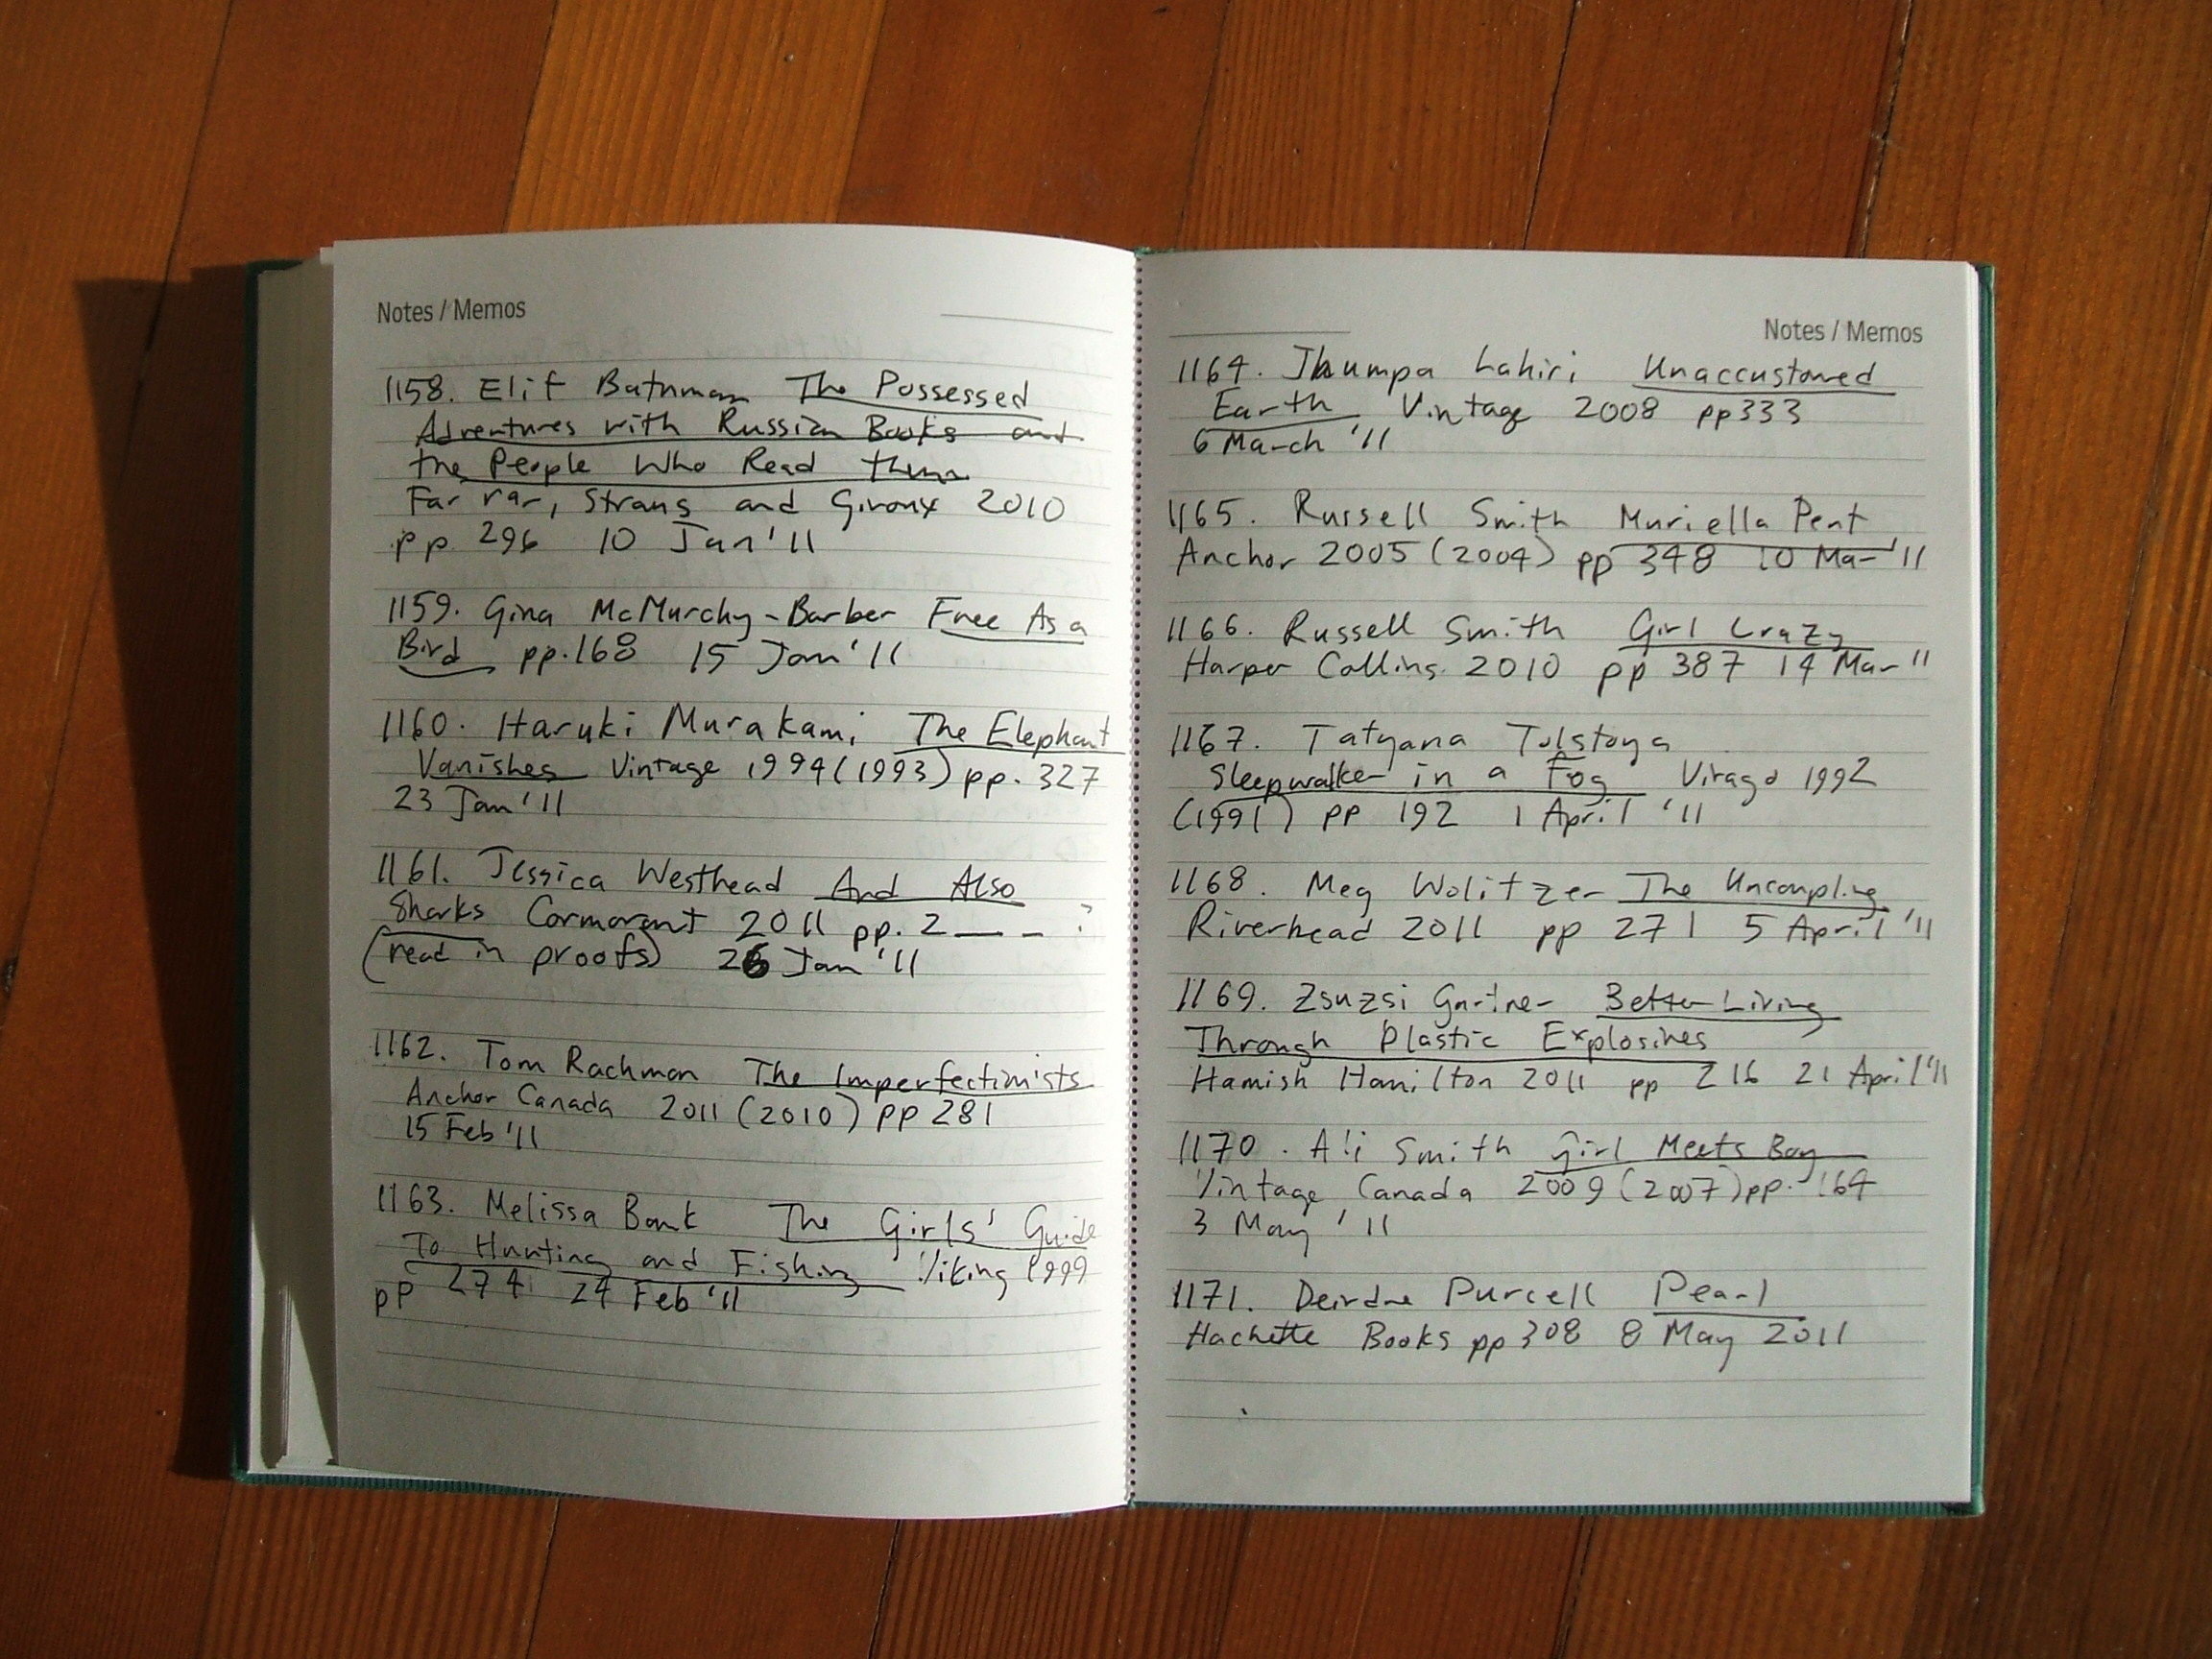 Notes / Memos
1158. Elif Batuman The Possessed
Adventures with Russian Books and
the People Who Read them
Farrar, Straus and Giroux 2010
pp 296 10 Jan '11
1159. Gina McMurchy-Barber Free As a
Bird pp. 168 15 Jan '11
1160. Haruki Murakami The Elephant
Vanishes Vintage 1994 (1993) pp. 327
23 Jan '11
1161. Jessica Westhead And Also
Sharks Cormorant 2011 pp. 2 — — – ?
(read in proofs) 26 Jan '11
1162. Tom Rachman The Imperfectionists
Anchor Canada 2011 (2010) pp 281
15 Feb '11
1163. Melissa Bank The Girls' Guide
To Hunting and Fishing Viking 1999
pp 274 24 Feb '11
Notes / Memos
1164. Jhumpa Lahiri Unaccustomed
Earth Vintage 2008 pp 333
6 March '11
1165. Russell Smith Muriella Pent
Anchor 2005 (2004) pp 348 10 Mar '11
1166. Russell Smith Girl Crazy
Harper Collins 2010 pp 387 14 Mar '11
1167. Tatyana Tolstoya
Sleepwalker in a Fog Virago 1992
(1991) pp 192 1 April '11
1168. Meg Wolitzer The Uncoupling
Riverhead 2011 pp 271 5 April '11
1169. Zsuzsi Gartner Better Living
Through Plastic Explosives
Hamish Hamilton 2011 pp 216 21 April '11
1170. Ali Smith Girl Meets Boy
Vintage Canada 2009 (2007) pp. 164
3 May '11
1171. Deirdre Purcell Pearl
Hachette Books pp 308 8 May 2011